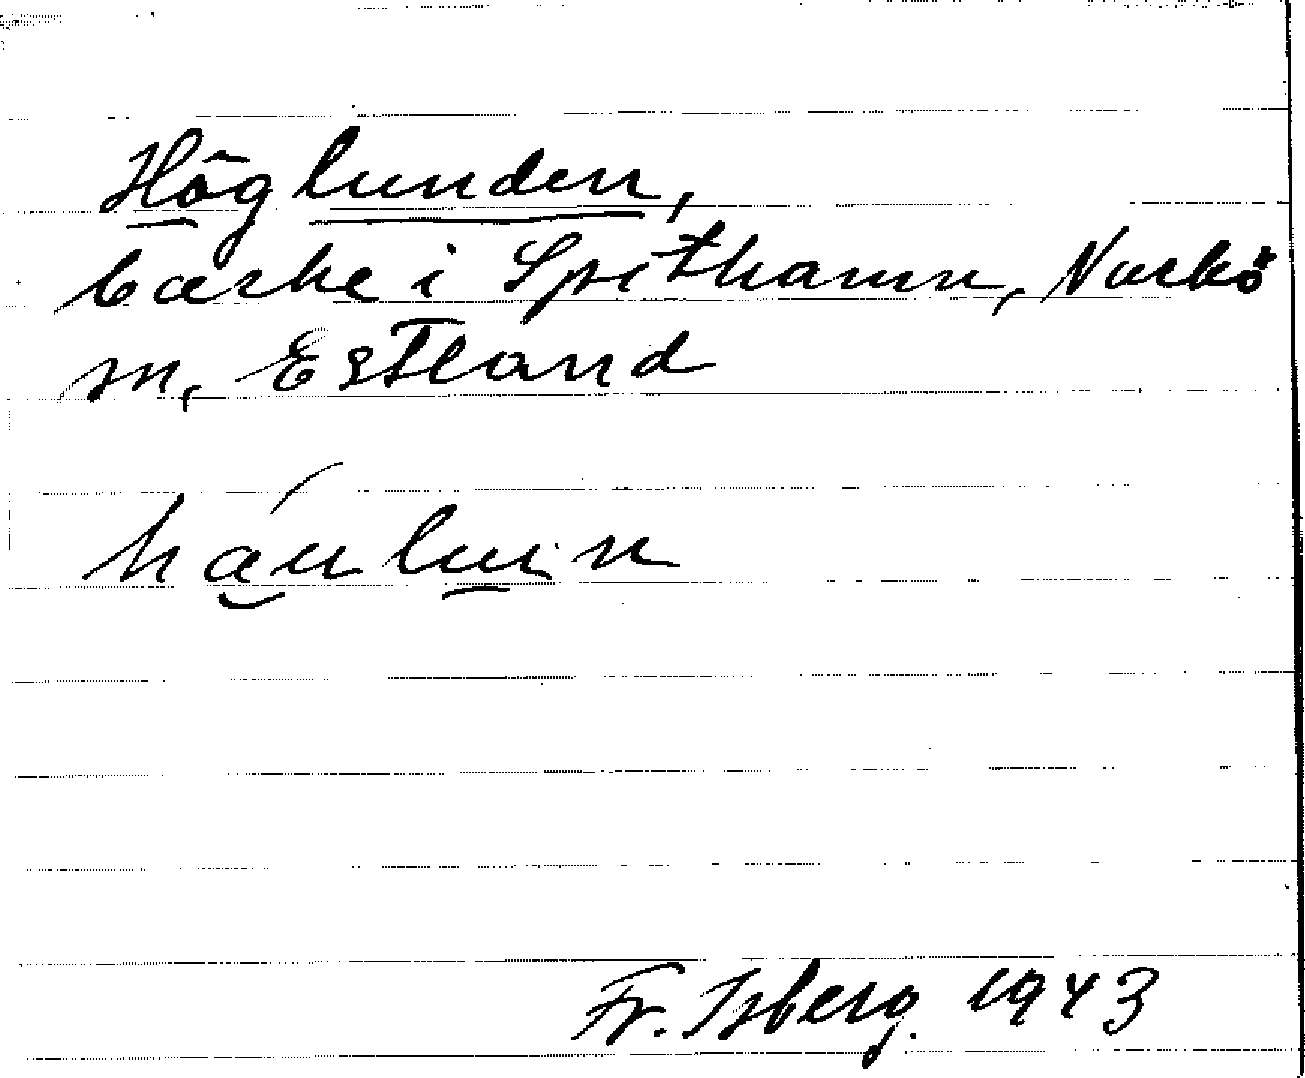 Höglunden,
backe i Spithamn, Nuckö
sn, Estland
háulunn
Fr. Isberg. 1943